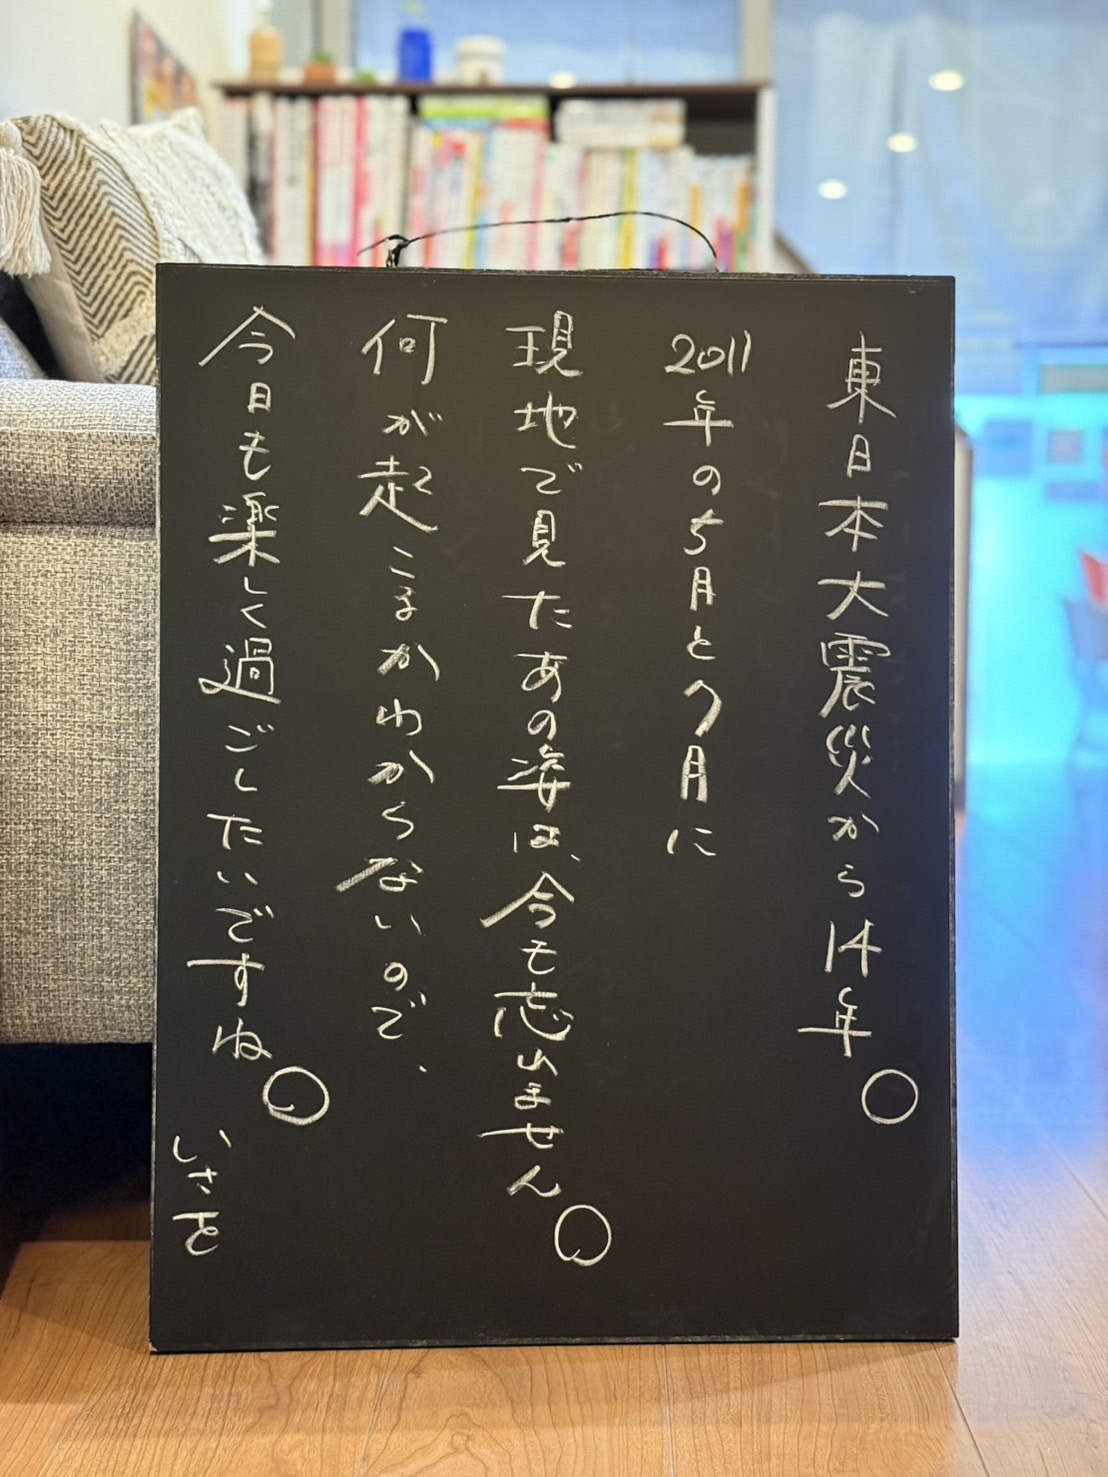 東日本大震災から14年。
2011年の5月と7月に
現地で見たあの姿は、今も忘れません。
何が起こるかわからないので、
今日も楽しく過ごしたいですね。
いさを